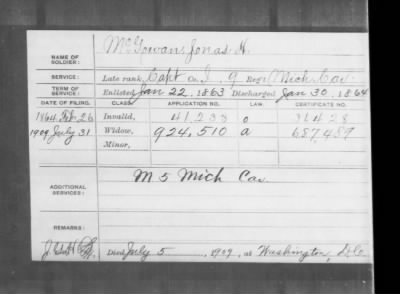 NAME OF SOLDIER: McGowan, Jonas H.
SERVICE: Late rank, Capt Co. I, 9 Reg't Mich Cav.
TERM OF SERVICE: Enlisted Jan 22, 1863 Discharged Jan 30, 1864
DATE OF FILING. CLASS. APPLICATION NO. LAW. CERTIFICATE NO.
1864 Feb 26 Invalid, 41,238 o 31428
1909 July 31 Widow, 924,510 a 687,489
Minor,
ADDITIONAL SERVICES: M 5 Mich Cav
REMARKS:
Died July 5, 1909, at Washington, D.C.